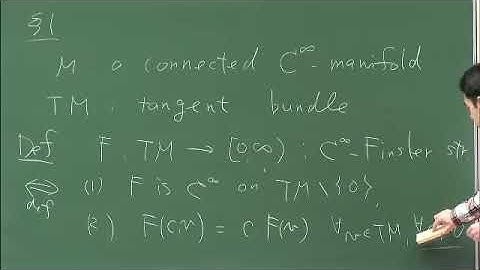 §1
M a connected C^∞-manifold
TM : tangent bundle
Def F : TM → [0,∞) : C^∞-Finsler str
⟺ def (1) F is C^∞ on TM \ {0},
(2) F(cv) = c F(v) ∀v∈TM, ∀